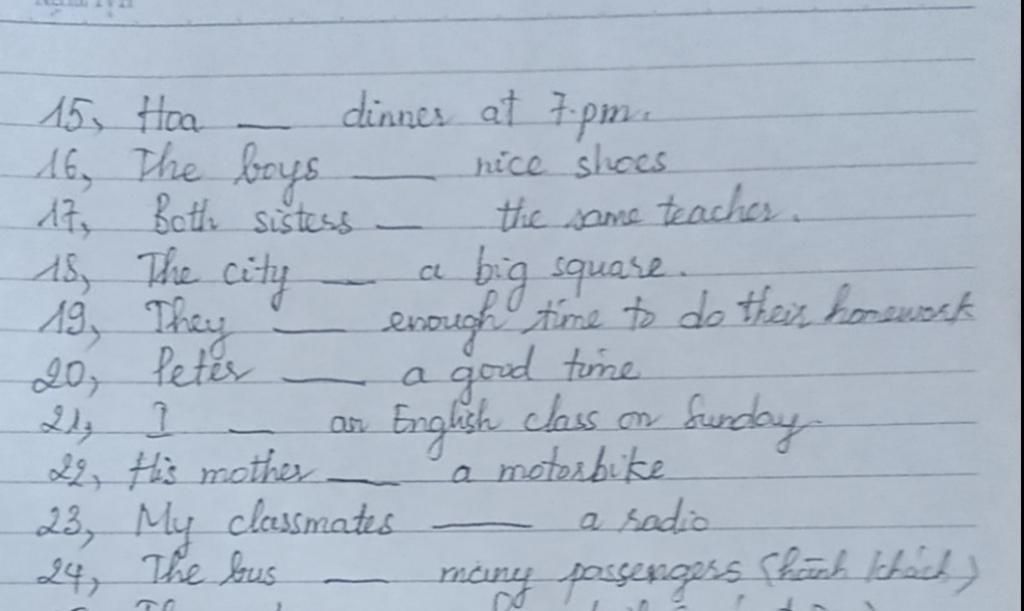 15, Hoa __ dinner at 7.pm.
16, The boys ___ nice shoes
17, Both sisters __ the same teacher.
18, The city __ a big square.
19, They ___ enough time to do their homework
20, Peter ___ a good time
21, I __ an English class on Sunday.
22, His mother ___ a motorbike
23, My classmates ____ a radio
24, The bus ___ many passengers (hành khách)